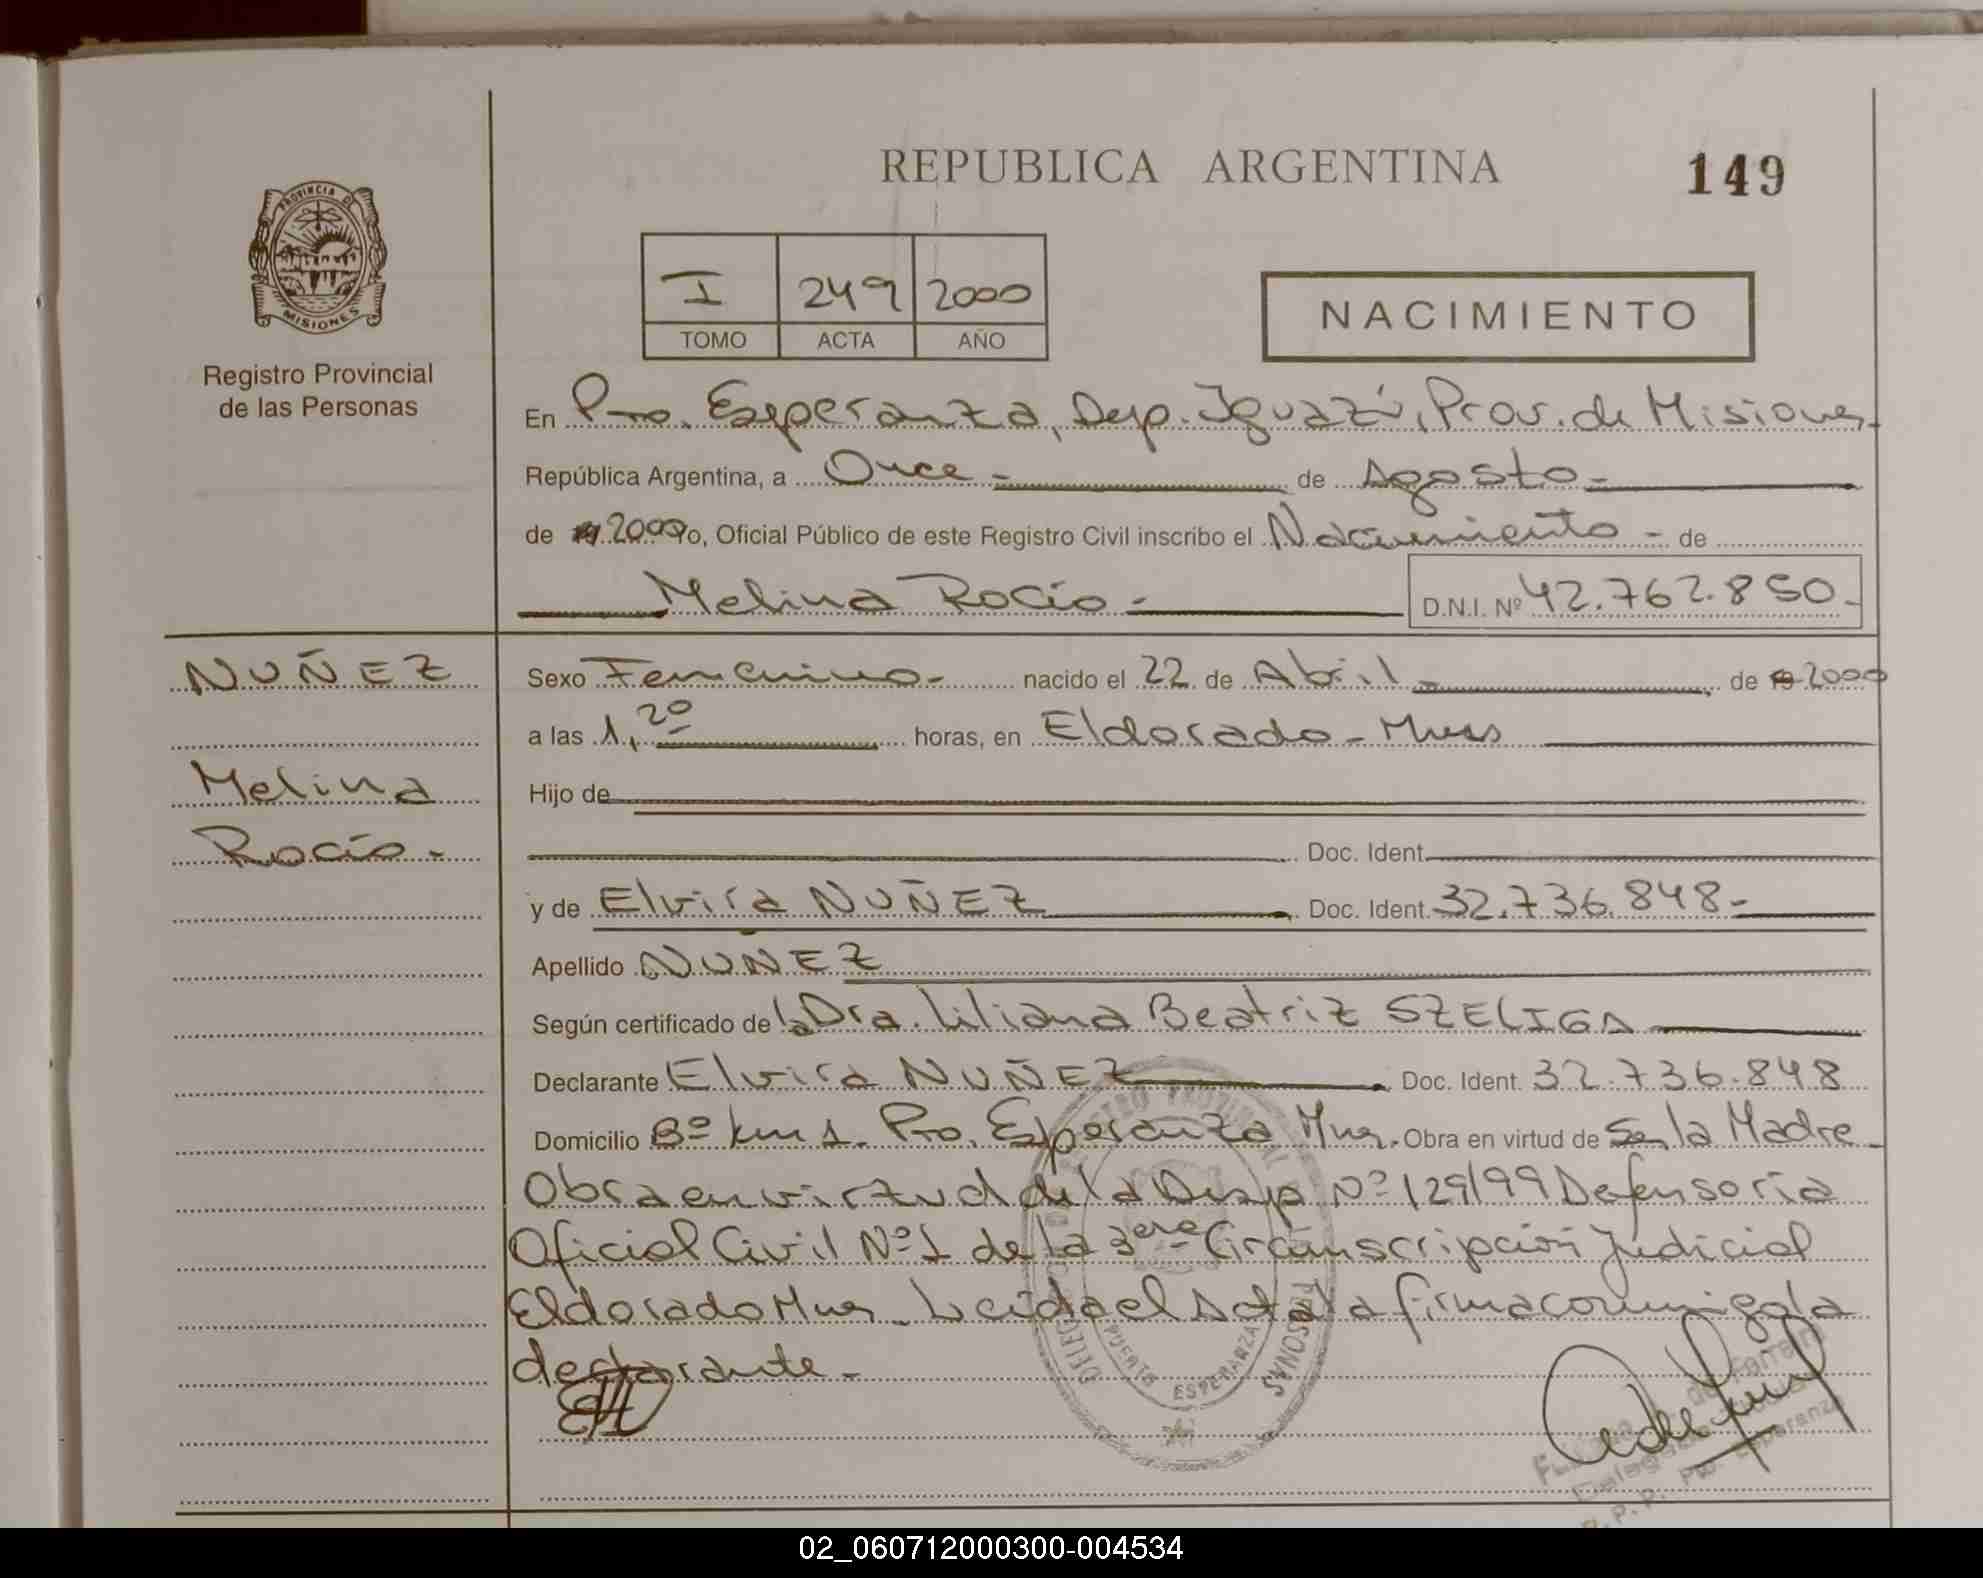 REPUBLICA ARGENTINA
149
PROVINCIA DE
MISIONES
Registro Provincial
de las Personas
I 249 2000
TOMO ACTA AÑO
NACIMIENTO
En Pto. Esperanza, Dep. Iguazú, Prov. de Misiones
República Argentina, a Once - de Agosto -
de 2000 yo, Oficial Público de este Registro Civil inscribo el Nacimiento - de
Melina Rocío - D.N.I. Nº 42.762.850-
NUÑEZ
Melina
Rocío -
Sexo Femenino - nacido el 22 de Abril - de 2000
a las 1,20 horas, en Eldorado - Mnes
Hijo de
Doc. Ident.
y de Elvira NUÑEZ Doc. Ident. 32.736.848-
Apellido NUÑEZ
Según certificado de la Dra. Liliana Beatriz SZELIGA
Declarante Elvira NUÑEZ Doc. Ident. 32.736.848
Domicilio Bº km 1. Pto. Esperanza Mnes. Obra en virtud de Ser la Madre -
Obra en virtud de la Disp Nº 129/99 Defensoría
Oficial Civil Nº 1 de la 3era Circunscripción Judicial
Eldorado Mnes. Leída el Acta la firma conmigo la
declarante -
PUERTO ESPERANZA
PERSONAS
02_060712000300-004534